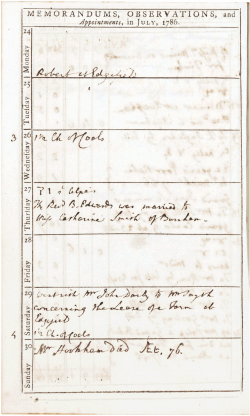 MEMORANDUMS, OBSERVATIONS, and
Appointments, in JULY, 1786.
24
Monday
Robert at Edgefield
25
Tuesday
3
26
Wednesday
1/2 Ch of Coals
27
Thursday
The Revd B. Edwards was married to
Miss Catherine Smith of
28
Friday
29
Saturday
with Mr John Darby to Mr Smyth
concerning the Lease of a Farm at
1/2 Ch of Coals
30
Sunday
Mr died Æt. 76.